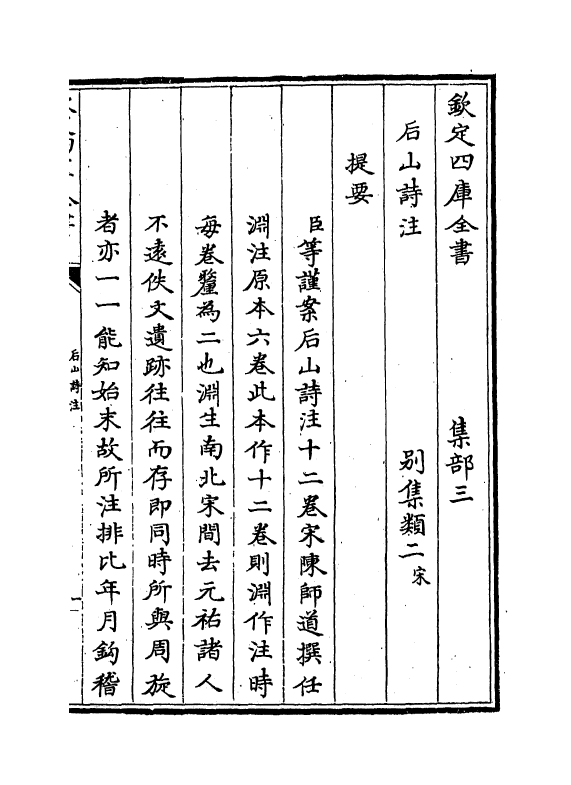 欽定四庫全書　集部三
后山詩注　别集類二宋
提要
臣等謹案后山詩注十二卷宋陳師道撰任
淵注原本六卷此本作十二卷則淵作注時
每卷釐為二也淵生南北宋間去元祐諸人
不遠佚文遺跡往往而存即同時所與周旋
者亦一一能知始末故所注排比年月鈎稽
后山詩注
一